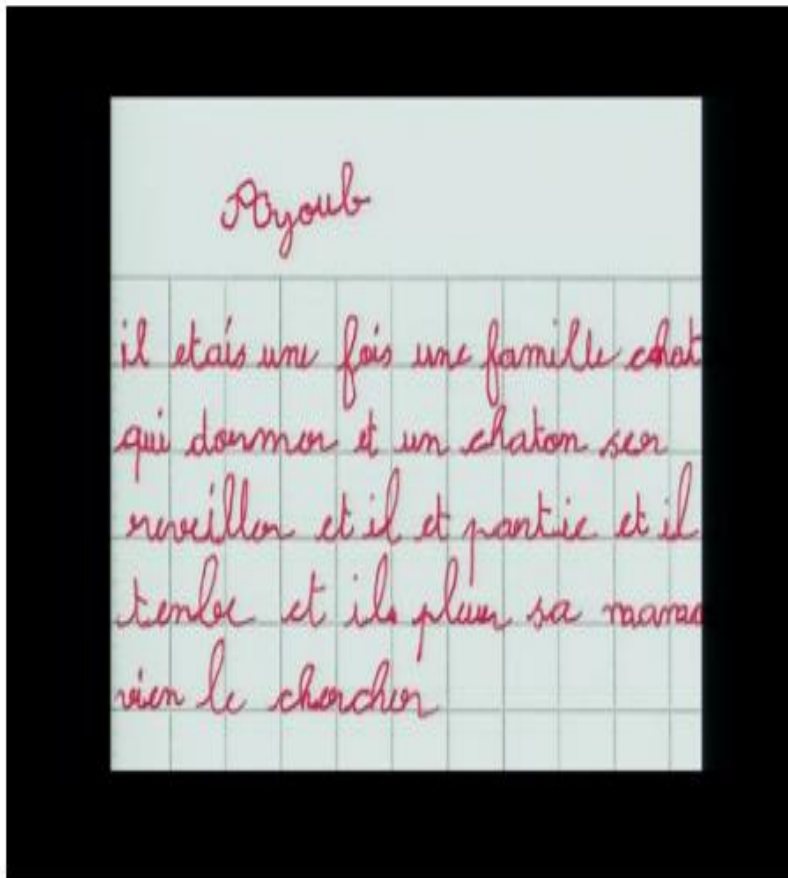 Ayoub
il etais une fois une famille chat
qui dormer et un chaton ser
reveiller et il et partie et il
tenbe et ils pleur sa mama
vien le chercher